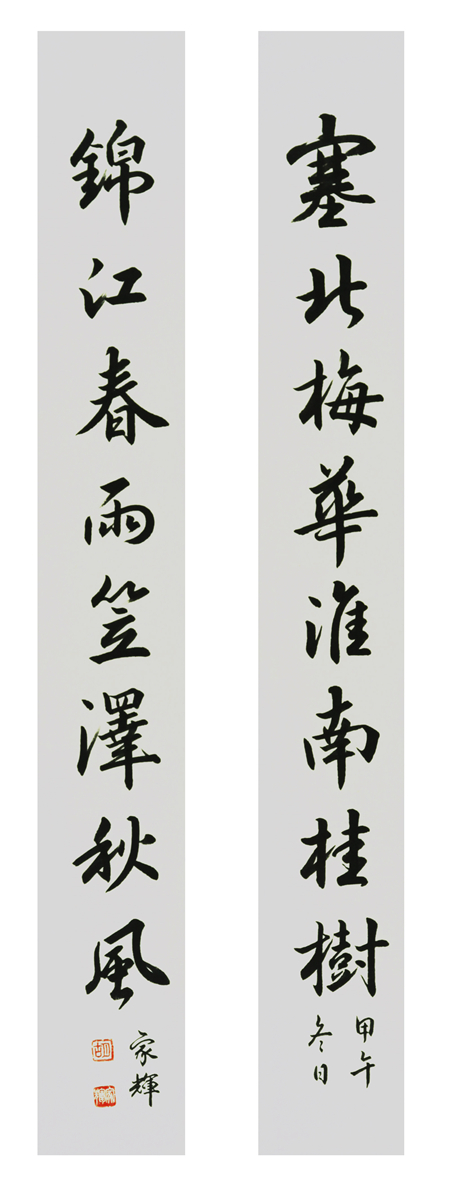 塞北梅華淮南桂樹
甲午
冬日
錦江春雨笠澤秋風
家輝